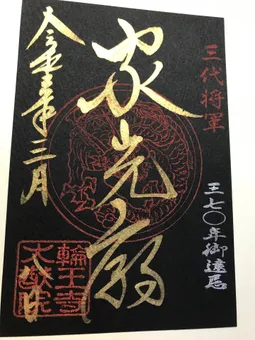 三代将軍
三七〇年御遠忌
家光廟
三月
八日
輪王寺
大猷院